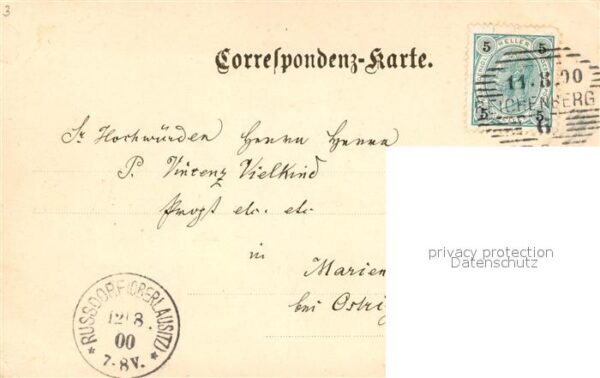 3
Correspondenz-Karte.
5 HELLER 5
11.8.00
ICHENBERG
5 5
6
Sr Hochwürden Herrn Herrn
P. Vinzenz Vielkind
Propst etc. etc
in
Marien
bei Ostri
privacy protection
Datenschutz
* RUSSDORF (OBERLAUSITZ) *
12 8.
00
7-8V.